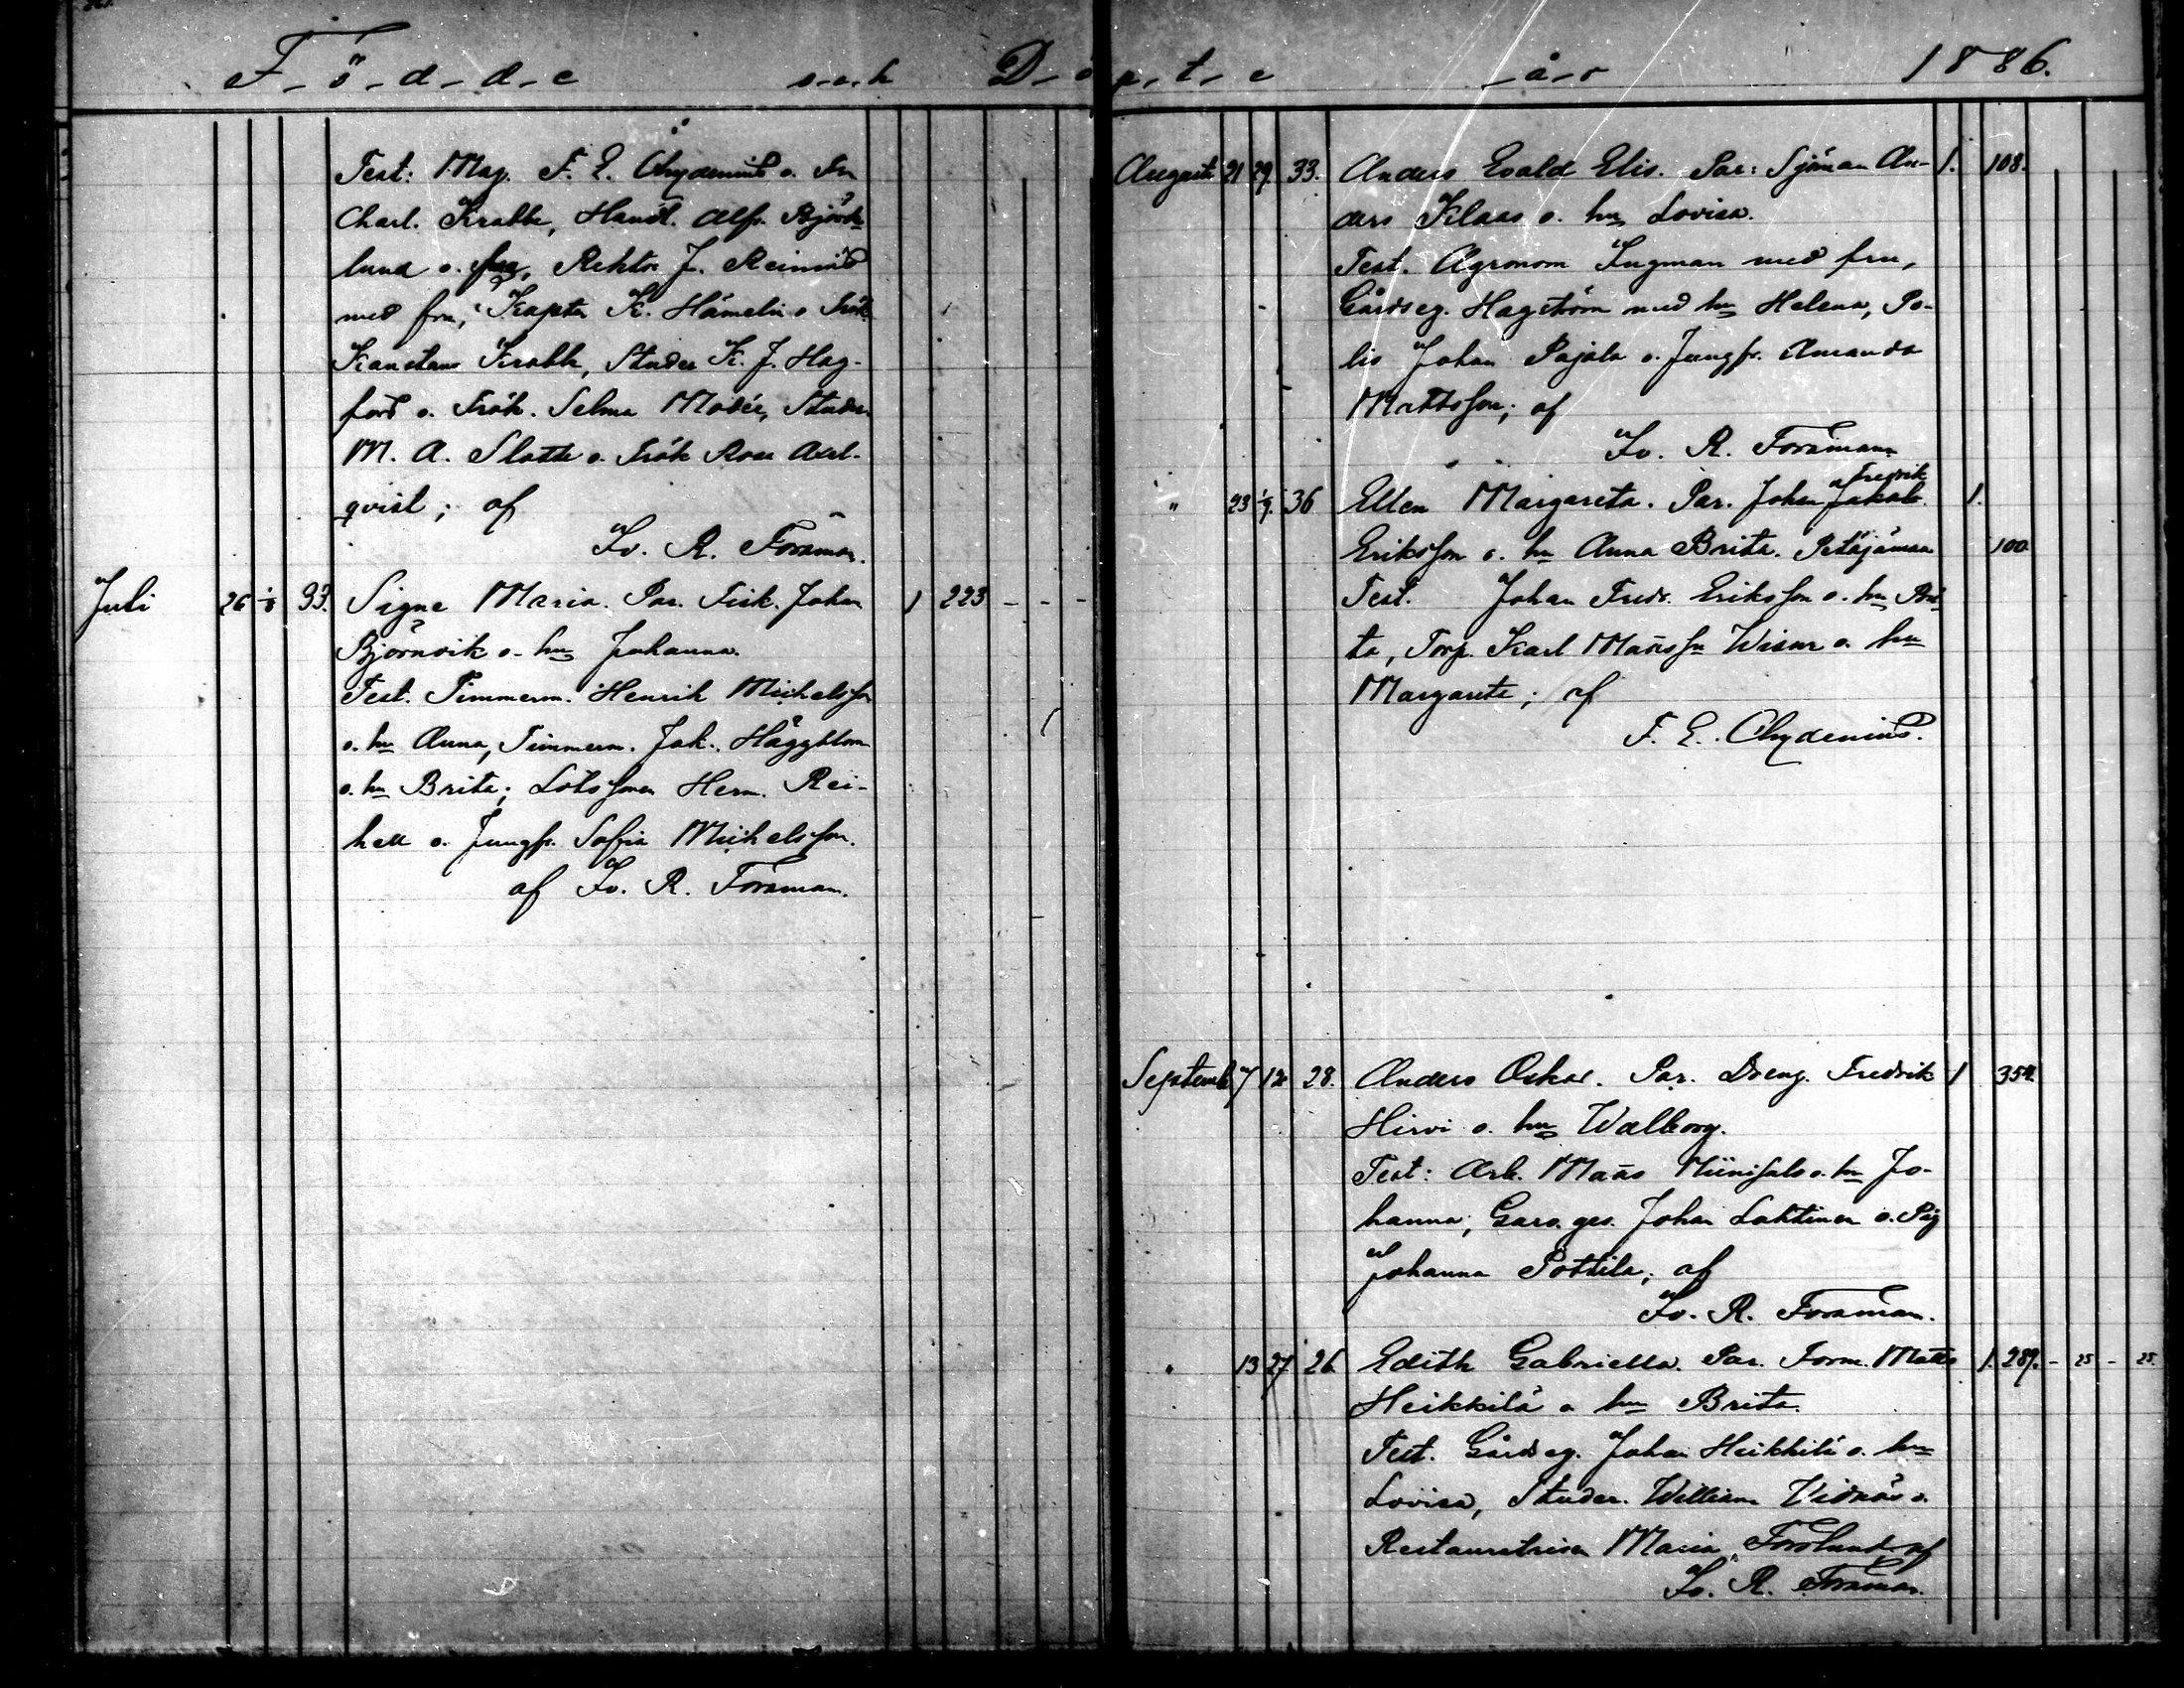 Födde och Döpte år 1886.
Test: Mag. F. E. Chydenius o. Fru
Charl. Krabbe, Handl. Alfr. Björk-
lund o. fru, Rektor J. Reinius
med fru, Kapten K. Hämelin o. Frök.
Konstans Krabbe, Studer K. J. Hag-
fors o. Frök. Selma Modée, Studer
M. A. Slotte o. Frök Rosa Axel-
qvist; af
Fv. R. Forsman.
Juli 26 1/8 33. Signe Maria. Par. Fisk. Johan 1 223 - - -
Björnvik o. hu Johanna.
Test. Timmerm. Henrik Michelsson
o. hu Anna, Timmerm. Jak. Häggblom
o. hu Brita; Lotssonen Herm. Rei-
hell o. Jungfr. Sofia Michelsson.
af Fv. R. Forsman.
August 21 29 33. Anders Evald Elis. Par: Sjöman An- 1. 108.
ders Klaas o. hu Lovisa.
Test. Agronom Ingman med fru,
Gårdseg. Hagström med hu Helena, Po-
lis Johan Pajala o. Jungfr. Amanda
Mattsson; af
Fv. R. Forsman
Fredrik
" 23 1/9 36 Ellen Margareta. Par. Johan Jakob 1.
Eriksson o. hu Anna Brita. Petäjämaa 100
Test. Johan Fredr. Eriksson o. hu Bri-
ta, Torp. Karl Matsson Wisur o. hu
Margareta; af
F. E. Chydenius.
Septemb 7 12 28. Anders Oskar. Par. Dreng. Fredrik 1 354
Hirvi o. hu Walborg.
Test: Arb. Matts Niinisalo o. hu Jo-
hanna; Garv. ges. Johan Lahtinen o. Pig
Johanna Pottila; af
Fv. R. Forsman.
" 13 27 26 Edith Gabriella. Par. Form. Matts 1. 289. - 25 - 25.
Heikkilä o hu Brita.
Test. Gårdseg. Johan Heikkilä o. hu
Lovisa, Studer. William Vidnäs o.
Restauratrisen Maria Forslund af
Fv. R. Forsman.